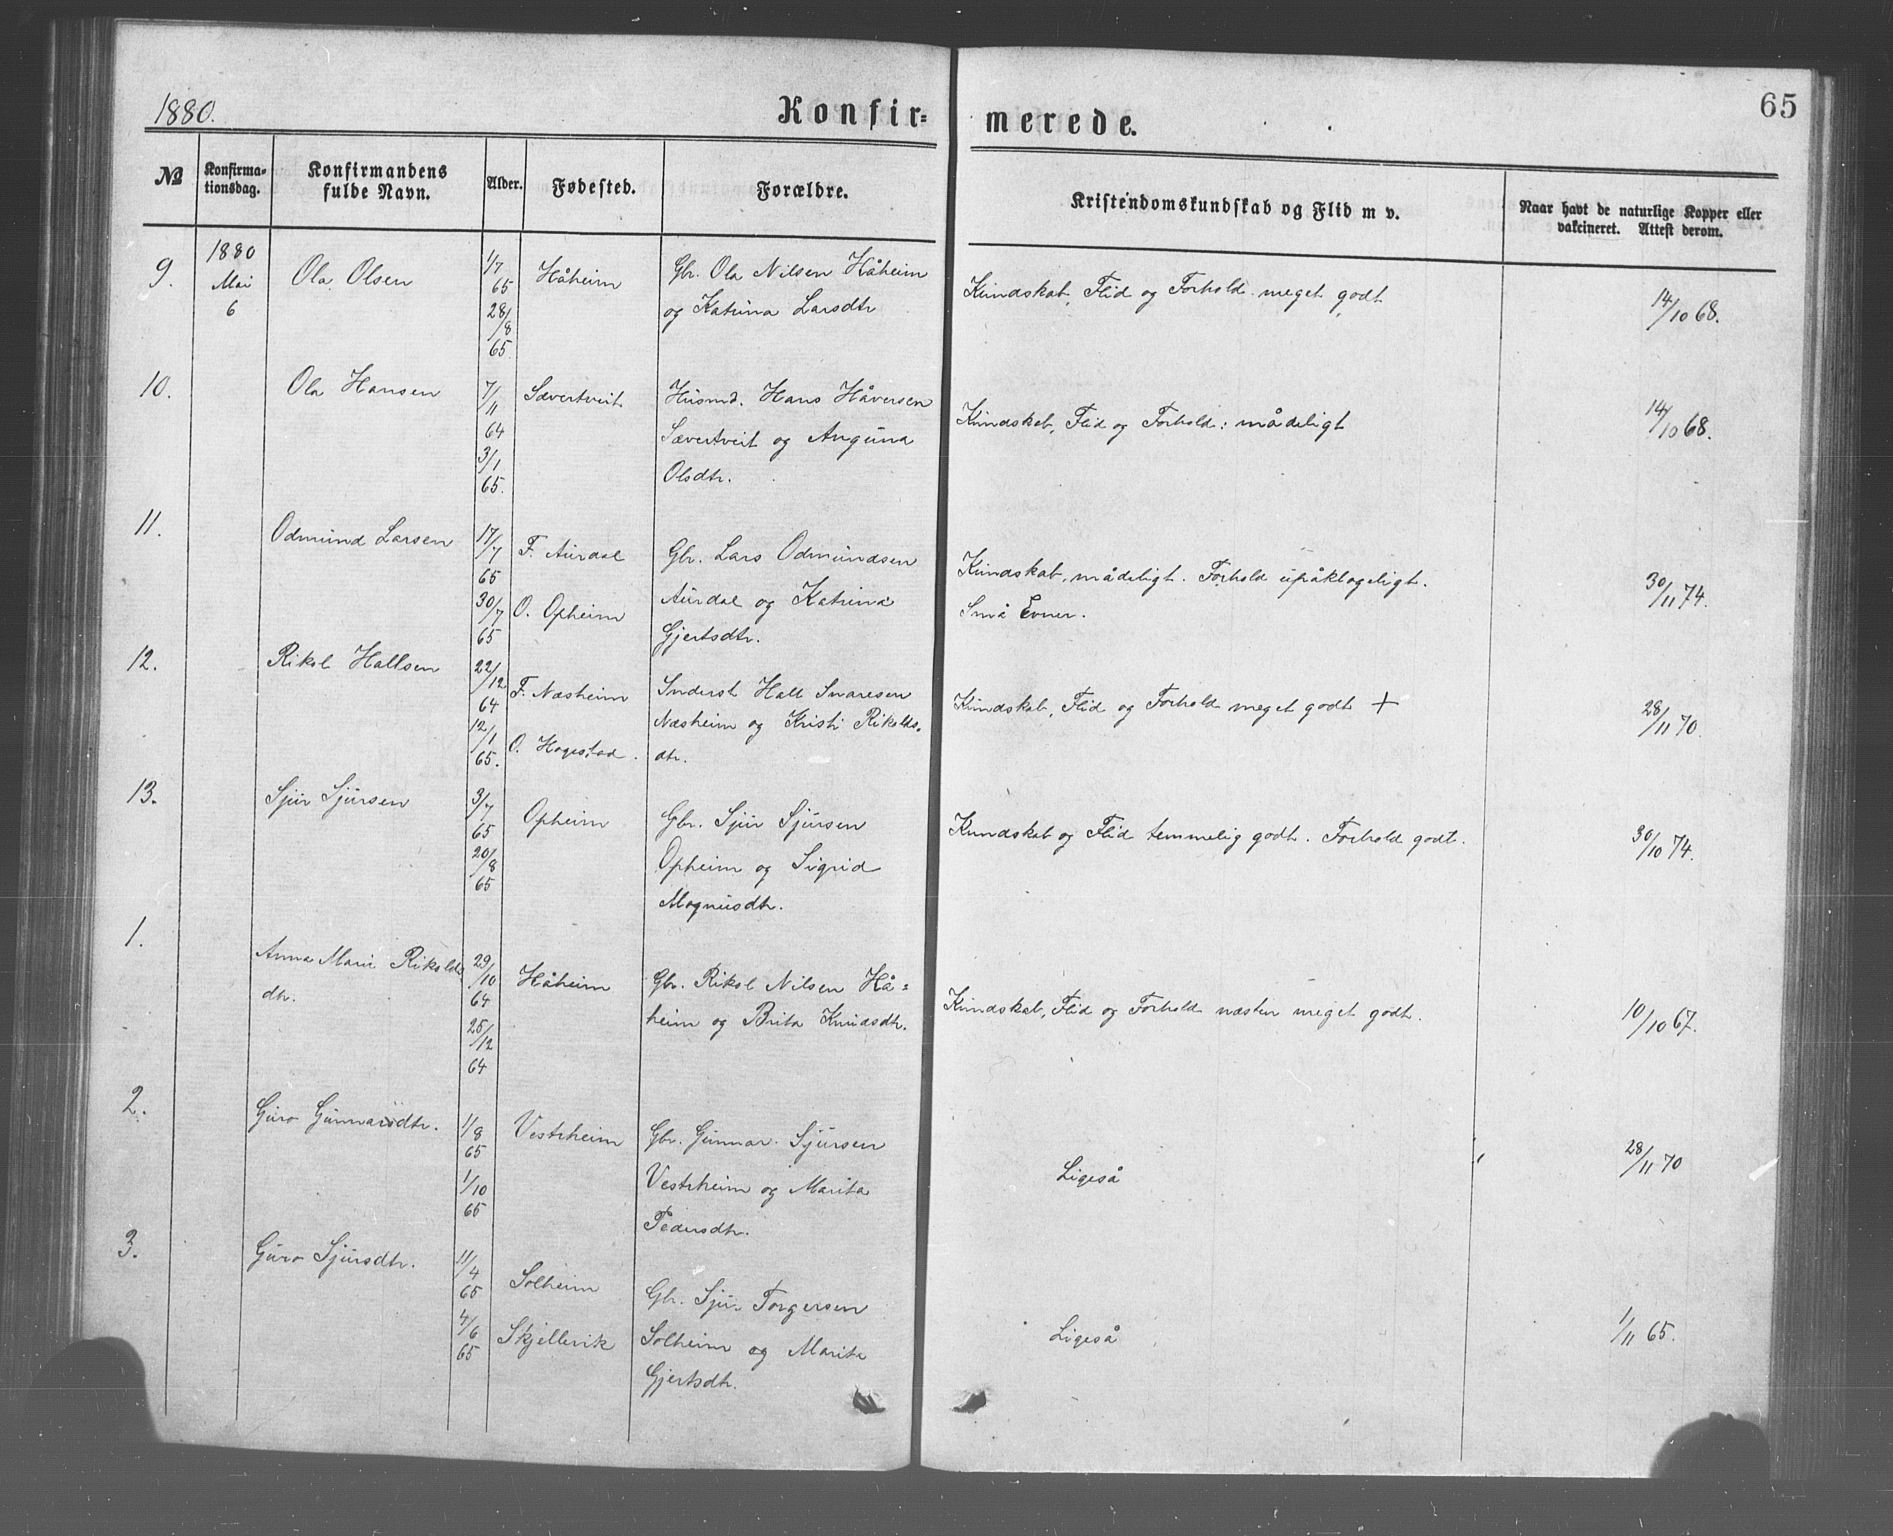 1880.
Konfir=
merede.
65
№
Konfirma-
tionsdag.
Konfirmandens
fulde Navn.
Alder.
Fødested.
Forældre.
Kristendomskundskab og Flid m v.
Naar havt de naturlige Kopper eller
vakcineret. Attest derom.
9.
1880
Mai
6
Ola Olsen
1/7
65
28/8
65
Håheim
Gbr. Ola Nilsen Håheim
og Katrina Larsdtr
Kundskab, Flid og Forhold meget godt
14/10 68.
10.
Ola Hansen
7/11
64
3/1
65.
Sævertveit
Husmd. Hans Håversen
Sævertveit og Anguna
Olsdtr.
Kundskab, Flid og Forhold: mådeligt
14/10 68.
11.
Odmund Larsen
17/7
65
30/7
65
F. Aurdal
O. Opheim
Gbr. Lars Odmundsen
Aurdal og Katrina
Gjertsdtr.
Kundskab, mådeligt. Forhold upåklageligt.
Små Evner.
30/11 74.
12.
Rikol Hallsen
22/12
64
12/1
65.
F. Næsheim
O. Hagestad.
Inderst Hall Snaresen
Næsheim og Kristi Rikolds-
dtr.
Kundskab, Flid og Forhold meget godt +
28/11 70.
13.
Sjur Sjursen
3/7
65
20/8
65
Opheim
Gbr. Sjur Sjursen
Opheim og Sigrid
Magnusdtr.
Kundskab og Flid temmelig godt. Forhold godt.
30/10 74.
1.
Anna Mari Rikolds
dtr.
29/10
64
25/12
64
Håheim
Gbr. Rikol Nilsen Hå=
heim og Brita Knudsdtr.
Kundskab, Flid og Forhold næsten meget godt.
10/10 67.
2.
Guro Gunnarsdtr.
1/8
65
1/10
65
Vestrheim
Gbr. Gunnar Sjursen
Vestrheim og Marita
Pedersdtr.
Ligeså
28/11 70
3.
Guro Sjursdtr.
11/4
65
4/6
65
Solheim
Skjellvik
Gbr. Sjur Torgersen
Solheim og Marita
Gjertsdtr.
Ligeså
1/11 65.